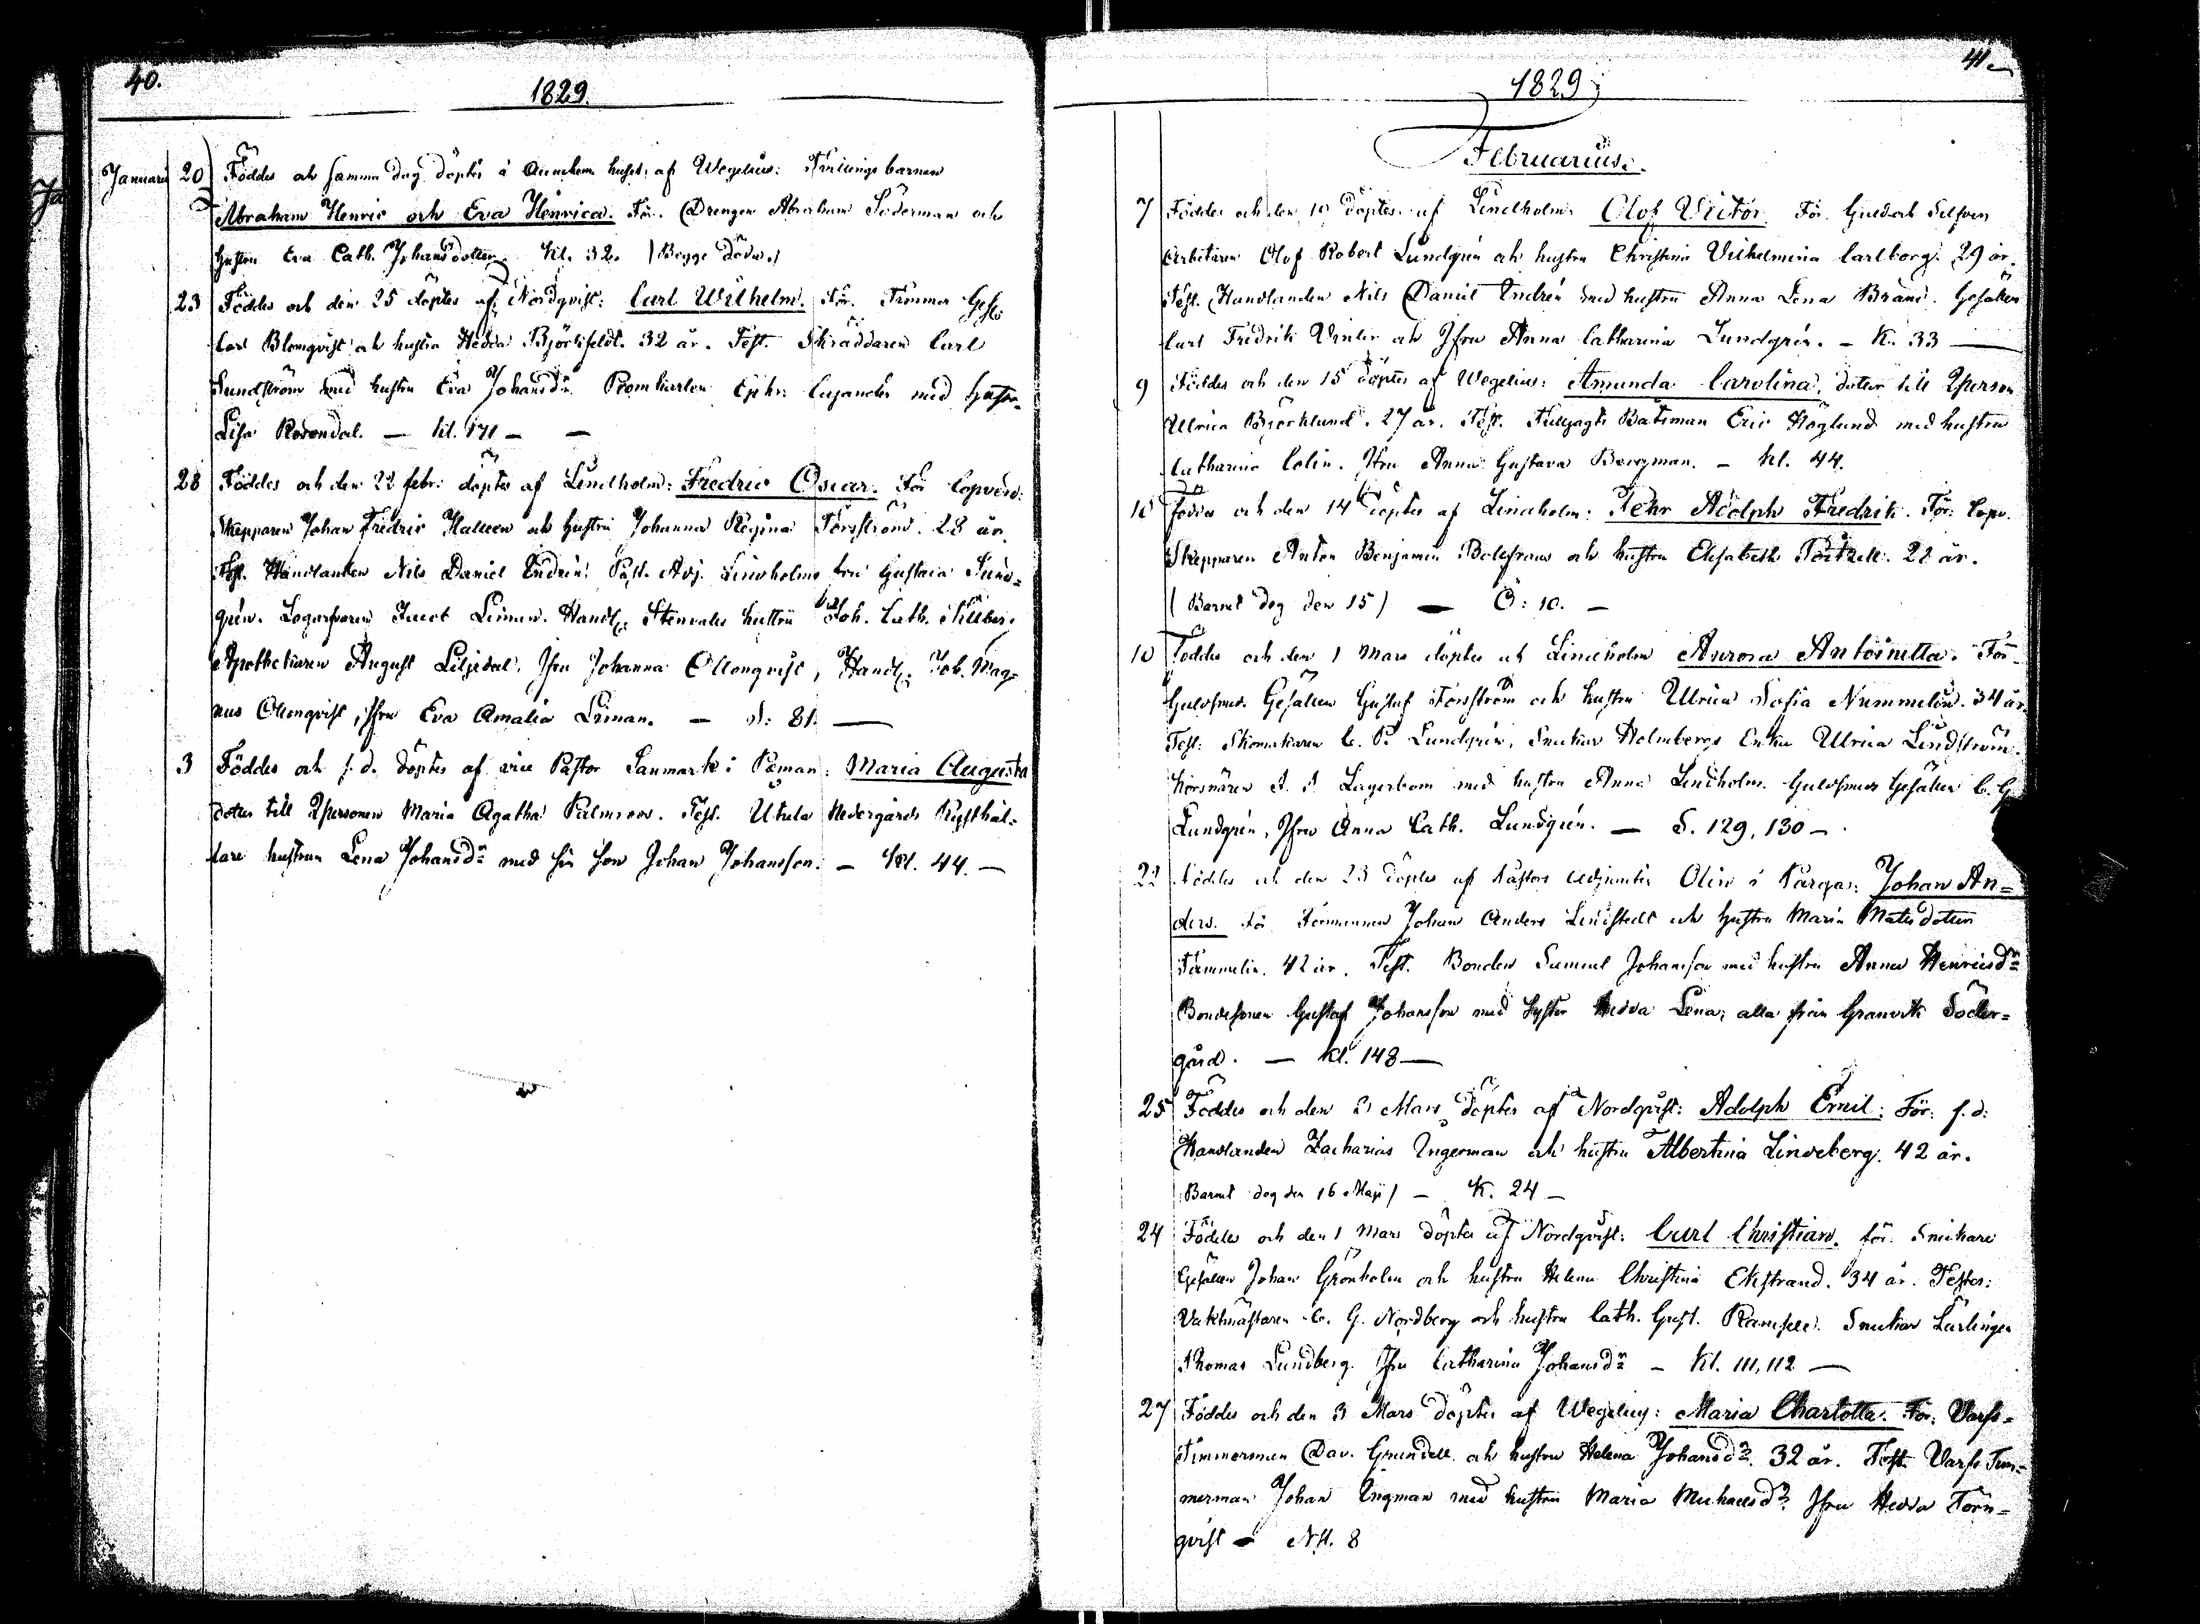 40.
1829.
Januari 20 Föddes och samma dag döptes af Wegelius: Tvillings barnen
Abraham Henric och Eva Henrica. För. Drengen Abraham Söderman och
hustru Eva Cath. Johansdotter. Kl. 32. (Begge döda.)
23 Föddes och den 25 döptes af Nordqvist: Carl Wilhelm. För. Timmer Ges.
Carl Blomqvist och hustru Hedda Björkfeldt. 32 år. Test. Skräddaren Carl
Sundström med hustru Eva Johansdr. Cajander med hustru
Lisa Rosendal. — Kl. 171 — —
28 Föddes och den 22 febr. döptes af Lindholm: Fredric Oscar. För Copverd.
Skepparen Johan Fredric Halleen och hustru Johanna Regina Forsström. 28 år.
Test. Handlanden Nils Daniel Endrén. Past. Adj. Lindholms fru Gustava Lund=
grén. Jacob Liman. Handl. Stenvalls hustru Joh. Cath.
Apothekaren August Liljedal. Jfru Johanna Ollonqvist, Handl. Joh. Mag=
nus Ollonqvist, Jfru Eva Amalia Liman. — S: 81. —
3 Föddes och s. d. döptes af vice Pastor Sanmark i Pemar: Maria Augusta
dotter till Qpersonen Maria Agatha Palmroos. Test. Utula Nedergårds Rusthål=
lare hustrun Lena Johansdr med sin son Johan Johansson. — Kl. 44. —
41.
1829
Februarius.
7 Föddes och den 10 döptes af Lindholm: Olof Victor. För. Guld och Silfver
Arbetaren Olof Robert Lundgrén och hustru Christina Vilhelmina Carlborg. 29 år.
Test. Handlanden Nils Daniel Endrén med hustru Anna Lena Brand. Gesällen
Carl Fredrik Winter och Jfru Anna Catharina Lundgrén. — K. 33 —
9 Föddes och den 15 döptes af Wegelius: Amanda Carolina, dotter till Qperson
Ulrica Björklund. 27 år. Test. Båtsman Eric Höglund med hustru
Catharina Colin. Jfru Anna Gustava Bergman. — Kl. 44.
10 Föddes och den 14 döptes af Lindholm: Fehr Adolph Fredrik. För: Copv.
Skepparen Anton Benjamin och hustru Elisabeth 28 år.
(Barnet dog den 15) — Ö: 10. —
10 Föddes och den 1 Mars döptes af Lindholm Aurora Antoinetta. För.
Guldsmeds Gesällen Gustaf Forsström och hustru Ulrica Sofia Nummelin. 34 år.
Test: Skomakaren C. P. Lundgrén, Snickar Holmbergs Enka Ulrica Lindström.
Körsnären Lagerbom med hustru Anna Lindholm. Guldsmeds Gesällen C. G.
Lundgrén, Jfru Anna Cath. Lundgrén. — S. 129, 130 —
22 Föddes och den 23 döptes af Pastors Adjunkten Olin i Pargas: Johan An=
ders. För Johan Anders Lindstedt och hustru Maria Matsdotter
Tammelin. 42 år. Test. Bonden Samuel Johansson med hustru Anna Henricsdr
Bondesonen Gustaf Johansson med syster Hedda Lena; alla från Granvik Söder=
gård. — Kl. 148 —
25 Föddes och den 3 Mars döptes af Nordqvist: Adolph Emil: För: f. d:
Handlanden Zacharias Ungerman och hustru Albertina Lindeberg. 42 år.
Barnet dog den 16 Maji) — K. 24 —
24 Föddes och den 1 Mars döptes af Nordqvist: Carl Christian. för. Snickare
Gesällen Johan Grönholm och hustru Helena Christina Ekstrand. 34 år. Testes:
Vaktmästaren C. G. Nordberg och hustru Cath. Gust. Ramsell. Snickar Lärlingen
Thomas Lundberg. Jfru Catharina Johansdr — Kl. 111, 112 —
27 Föddes och den 3 Mars döptes af Wegelius: Maria Charlotta. För: Varfs=
Timmerman Dav. Grundell och hustru Helena Johansdr. 32 år. Test. Varfs Tim=
merman Johan Engman med hustru Maria Michaelsdr. Jfru Hedda Törn=
qvist — Nst. 8